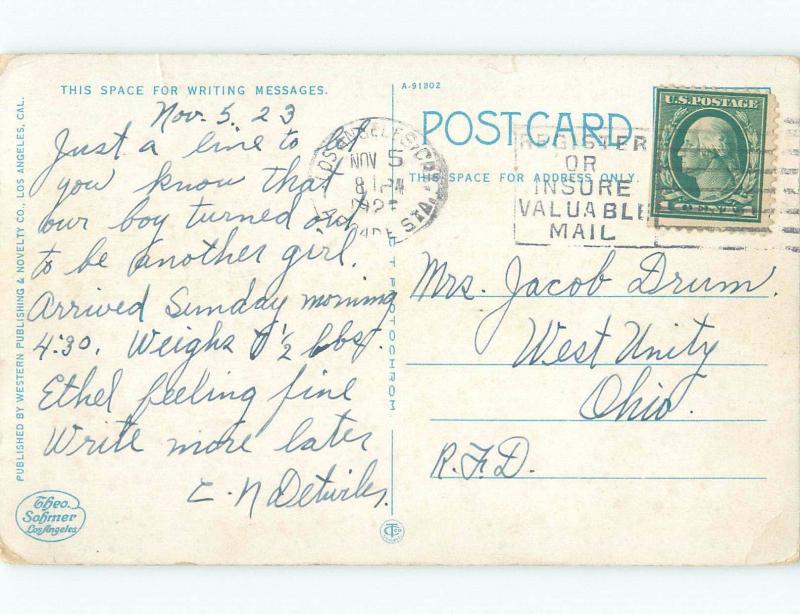 THIS SPACE FOR WRITING MESSAGES.
Nov. 5. 23
Just a line to let
you know that
our boy turned out
to be another girl.
Arrived Sunday morning
4:30. Weighs 1/2 lbs.
Ethel feeling fine
Write more later
C. N
PUBLISHED BY WESTERN PUBLISHING & NOVELTY CO., LOS ANGELES, CAL.
Theo.
Sohmer
Los Angeles
A-91802
POSTCARD
THIS SPACE FOR ADDRESS ONLY.
LOS ANGELES
NOV 5
8
REGISTER
OR
INSURE
VALUABLE
MAIL
U.S. POSTAGE
1 CENT 1
PHOTOCHROM
Mrs. Jacob Drum.
West Unity
Ohio.
R.F.D.